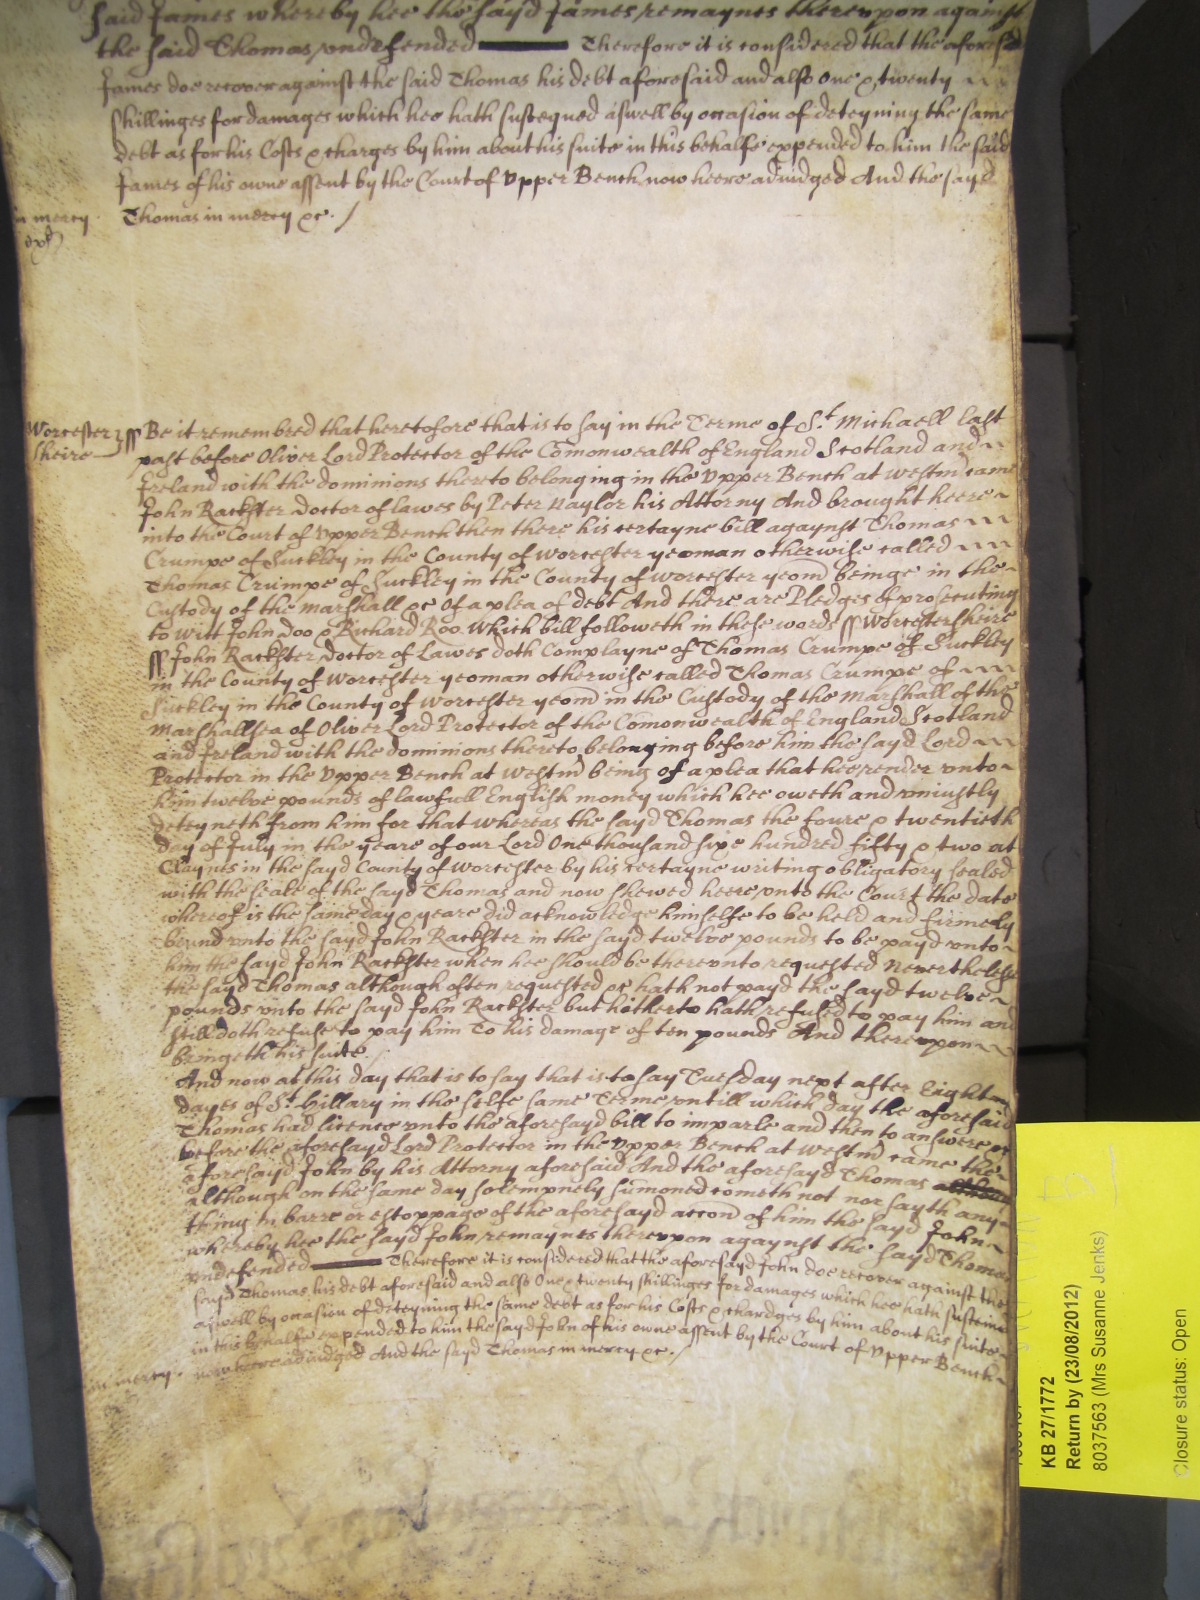 said James whereby hee the sayd James remaynes thereupon against
the said Thomas undefended Therefore it is considered that the aforesd
James doe recover against the said Thomas his debt aforesaid and also One & twenty
shillinges for damages which hee hath susteyned aswell by occasion of deteyning the same
debt as for his Costs & charges by him about his suite in this behalfe expended to him the said
James of his owne assent by the Court of Upper Bench now heere adiudged And the sayd
in mercy Thomas in mercy &c. /
Worcester sheire ss Be it remembred that heretofore that is to say in the Terme of St. Michaell last
past before Oliver Lord Protector of the Comonwealth of England Scotland and
Ireland with the dominions thereto belonging in the Upper Bench at Westm came
John Rackster Doctor of lawes by Peter Naylor his Attorny And brought heere
into the Court of Upper Bench then there his certayne bill agaynst Thomas
Crumpe of Suckley in the County of Worcester yeoman otherwise called
Thomas Crumpe of Suckley in the County of Worcester yeom beinge in the
Custody of the marshall &c Of a plea of debt And there are Pledges of prosecuting
to witt John Doo & Richard Roo. Which bill followeth in these words ss Worcestersheire
ss John Rackster Doctor of Lawes doth Complayne of Thomas Crumpe of Suckley
in the County of Worcester yeoman otherwise called Thomas Crumpe of
Suckley in the County of Worcester yeom in the Custody of the Marshall of the
Marshallsea of Oliver Lord Protector of the Comonwealth of England Scotland
and Ireland with the dominions thereto belonging before him the sayd Lord
Protector in the Upper Bench at Westm being of a plea that hee render unto
him twelve pounds of lawfull English money which hee oweth and uniustly
deteyneth from him for that whereas the sayd Thomas the foure & twentieth
day of July in the yeare of our Lord One thousand sixe hundred fifty & two at
Claynes in the sayd County of Worcester by his certayne writing obligatory sealed
with the seale of the sayd Thomas and now shewed heere unto the Court the date
whereof is the same day & yeare did acknowledge himselfe to be held and firmely
bound unto the sayd John Rackster in the sayd twelve pounds to be payd unto
him the sayd John Rackster when hee should be thereunto requested Neverthelesse
the sayd Thomas although often requested &c hath not payd the sayd twelve
pounds unto the sayd John Rackster but hitherto hath refused to pay him and
still doth refuse to pay him To his damage of ten pounds And thereupon
bringeth his suite.
And now at this day that is to say that is to say Tuesday next after Eight
dayes of St. Hillary in the selfe same Terme untill which day the aforesaid
Thomas had licence unto the aforesayd bill to imparle and then to answere &c
before the aforesayd Lord Protector in the Upper Bench at Westm came the
aforesayd John by his Attorny aforesaid And the aforesayd Thomas
although on the same day solempnely sumoned cometh not nor sayth any
thing in barre or estoppage of the aforesayd accon of him the sayd John
whereby hee the sayd John remaynes thereupon agaynst the sayd Thomas
undefended Therefore it is considered that the aforesayd John doe recover against the
sayd Thomas his debt aforesaid and also One & twenty shillinges for damages which hee hath susteined
aswell by occasion of deteyning the same debt as for his Costs & chardges by him about his suite
in this behalfe expended to him the sayd John of his owne assent by the Court of Upper Bench
in mercy. now heere adiudged And the sayd Thomas in mercy &c. /
KB 27/1772
Return by (23/08/2012)
8037563 (Mrs Susanne Jenks)
Closure status: Open